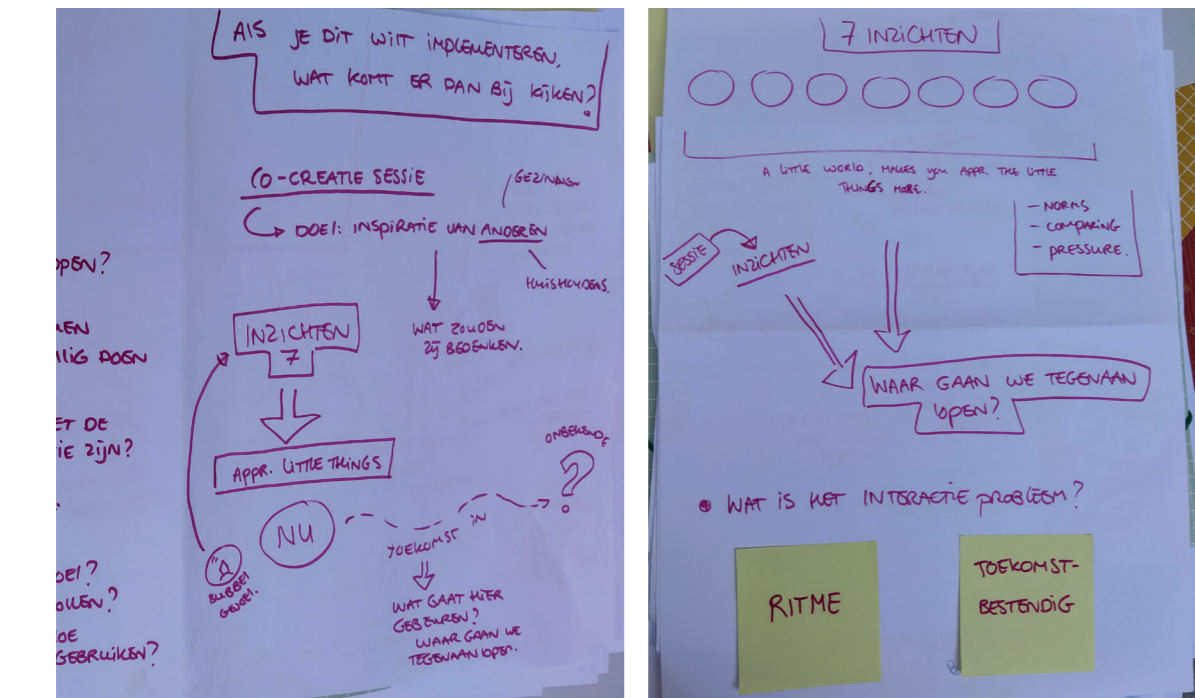 ALS JE DIT WILT IMPLEMENTEREN,
WAT KOMT ER DAN BIJ KIJKEN?
CO-CREATIE SESSIE
GEZINNEN
DOEL: INSPIRATIE VAN ANDEREN
HUISHOUDENS.
WAT ZOUDEN
ZIJ BEDENKEN.
INZICHTEN
7
APPR. LITTLE THINGS
NU
TOEKOMST
IN
ONBEKENDE
?
BUBBEL
GEVOEL.
WAT GAAT HIER
GEBEUREN?
WAAR GAAN WE
TEGENAAN LOPEN.
OPEN?
DOEN
ET DE
IE ZIJN?
OEL?
OLLEN?
OE
GEBRUIKEN?
7 INZICHTEN
A LITTLE WORLD, MAKES YOU APPR. THE LITTLE
THINGS MORE.
- NORMS
- COMPARING
- PRESSURE.
SESSIE
INZICHTEN
WAAR GAAN WE TEGENAAN
LOPEN?
• WAT IS HET INTERACTIE PROBLEEM?
RITME
TOEKOMST-
BESTENDIG